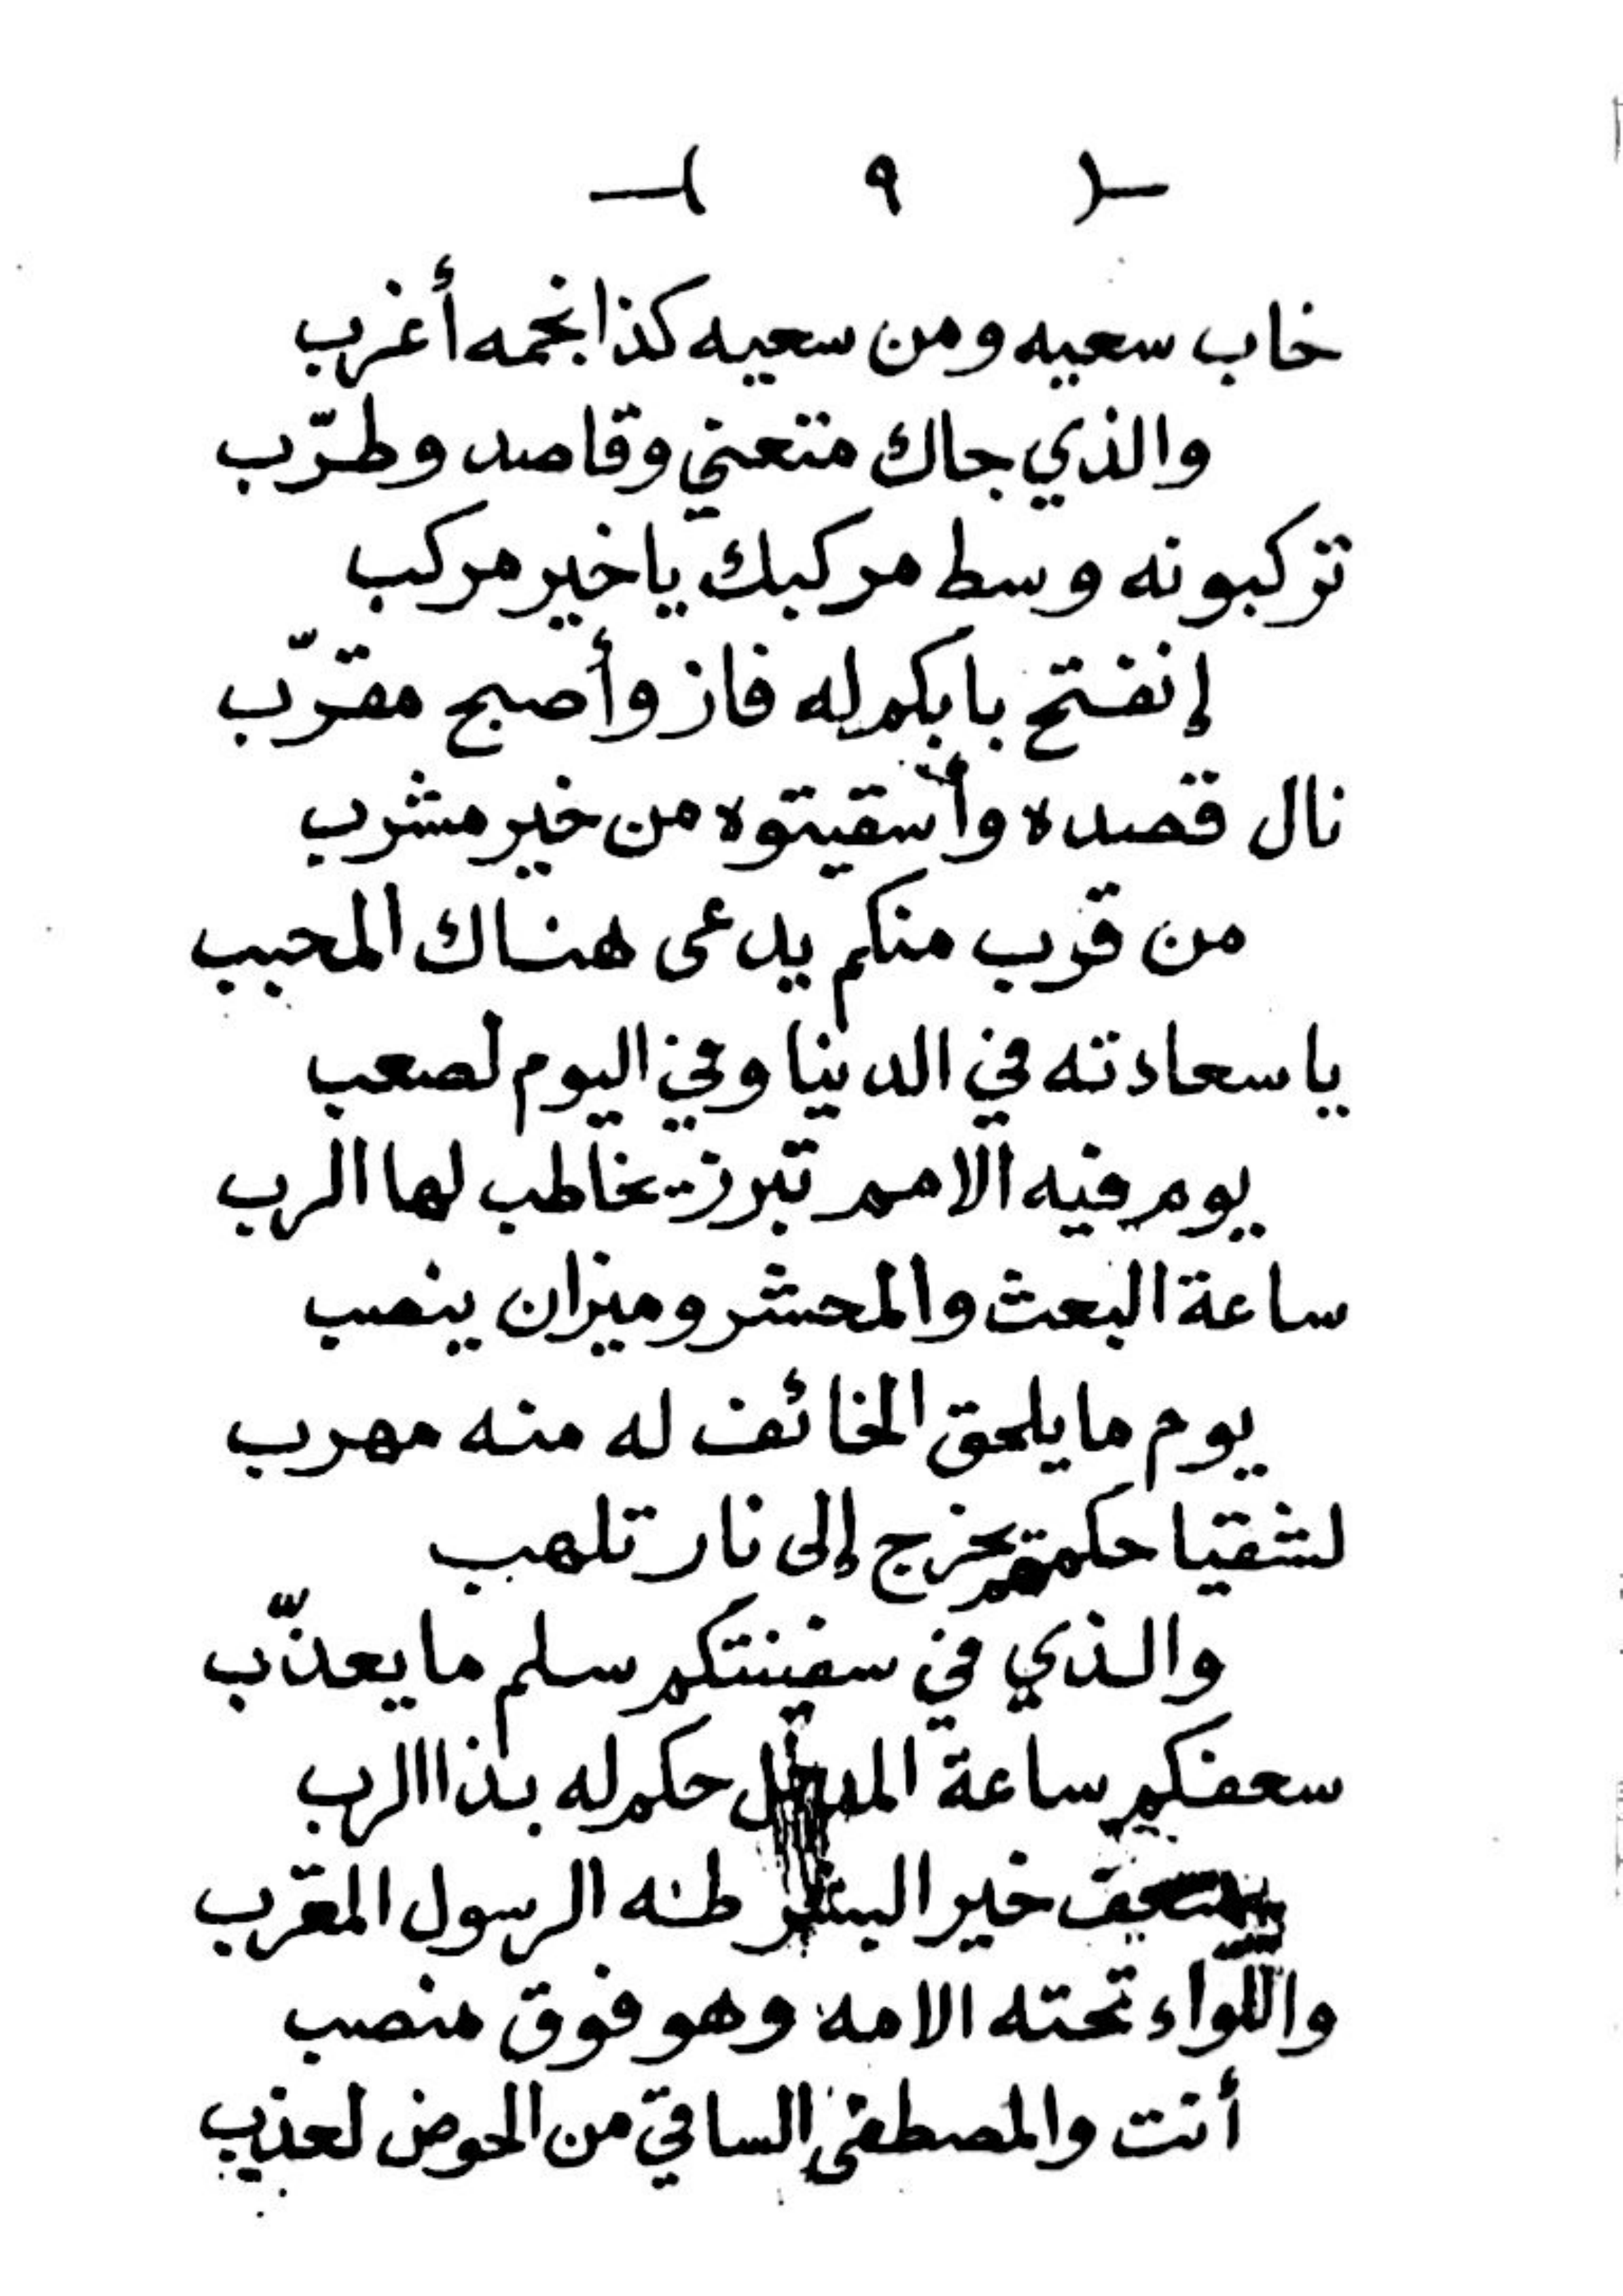 -( ٩ )-
خاب سعيه ومن سعيه كذا نجمه أغرب
والذي جاك متعني وقاصد وطرّب
تركبونه وسط مركبك يا خير مركب
إنفتح بابكم له فاز وأصبح مقرّب
نال قصده وأسقيتوه من خير مشرب
من قرب منكم يدعى هناك المحبب
يا سعادته في الدنيا وفي اليوم لصعب
يوم فيه الامم تبرز يخاطب لها الرب
ساعة البعث والمحشر وميزان ينصب
يوم ما يلحق الخائف له منه مهرب
لشقيا حكمهم يخرج إلى نار تلهب
والذي في سفينتكم سلم ما يعذّب
سعفكم ساعة حكم له بذا الرب
خير البشر طه الرسول المقرب
واللّواء تحته الامه وهو فوق منصب
أنت والمصطفى الساقي من الحوض لعذب